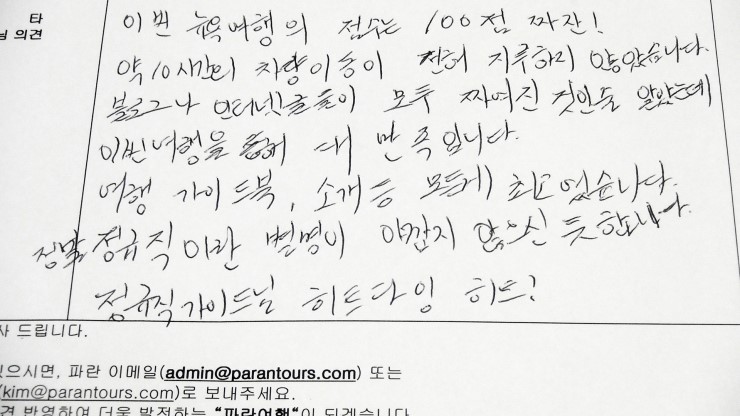 타
님 의견
이번 뉴욕여행의 점수는 100점 짜잔!
약 10시간의 차량이동이 전혀 지루하지 않았습니다.
블로그나 인터넷글들이 모두 짜여진 것인줄 알았는데
이번여행을 통해 대 만족입니다.
여행 가이드북, 소개 등 모든게 최고였습니다.
정말 정규직이란 별명이 아깝지 않으신 듯 합니다.
정규직가이드님 히트다 잉 히트!
사 드립니다.
있으시면, 파란 이메일(admin@parantours.com) 또는
(kim@parantours.com)로 보내주세요.
견 반영하여 더욱 발전하는 "파란여행"이 되겠습니다